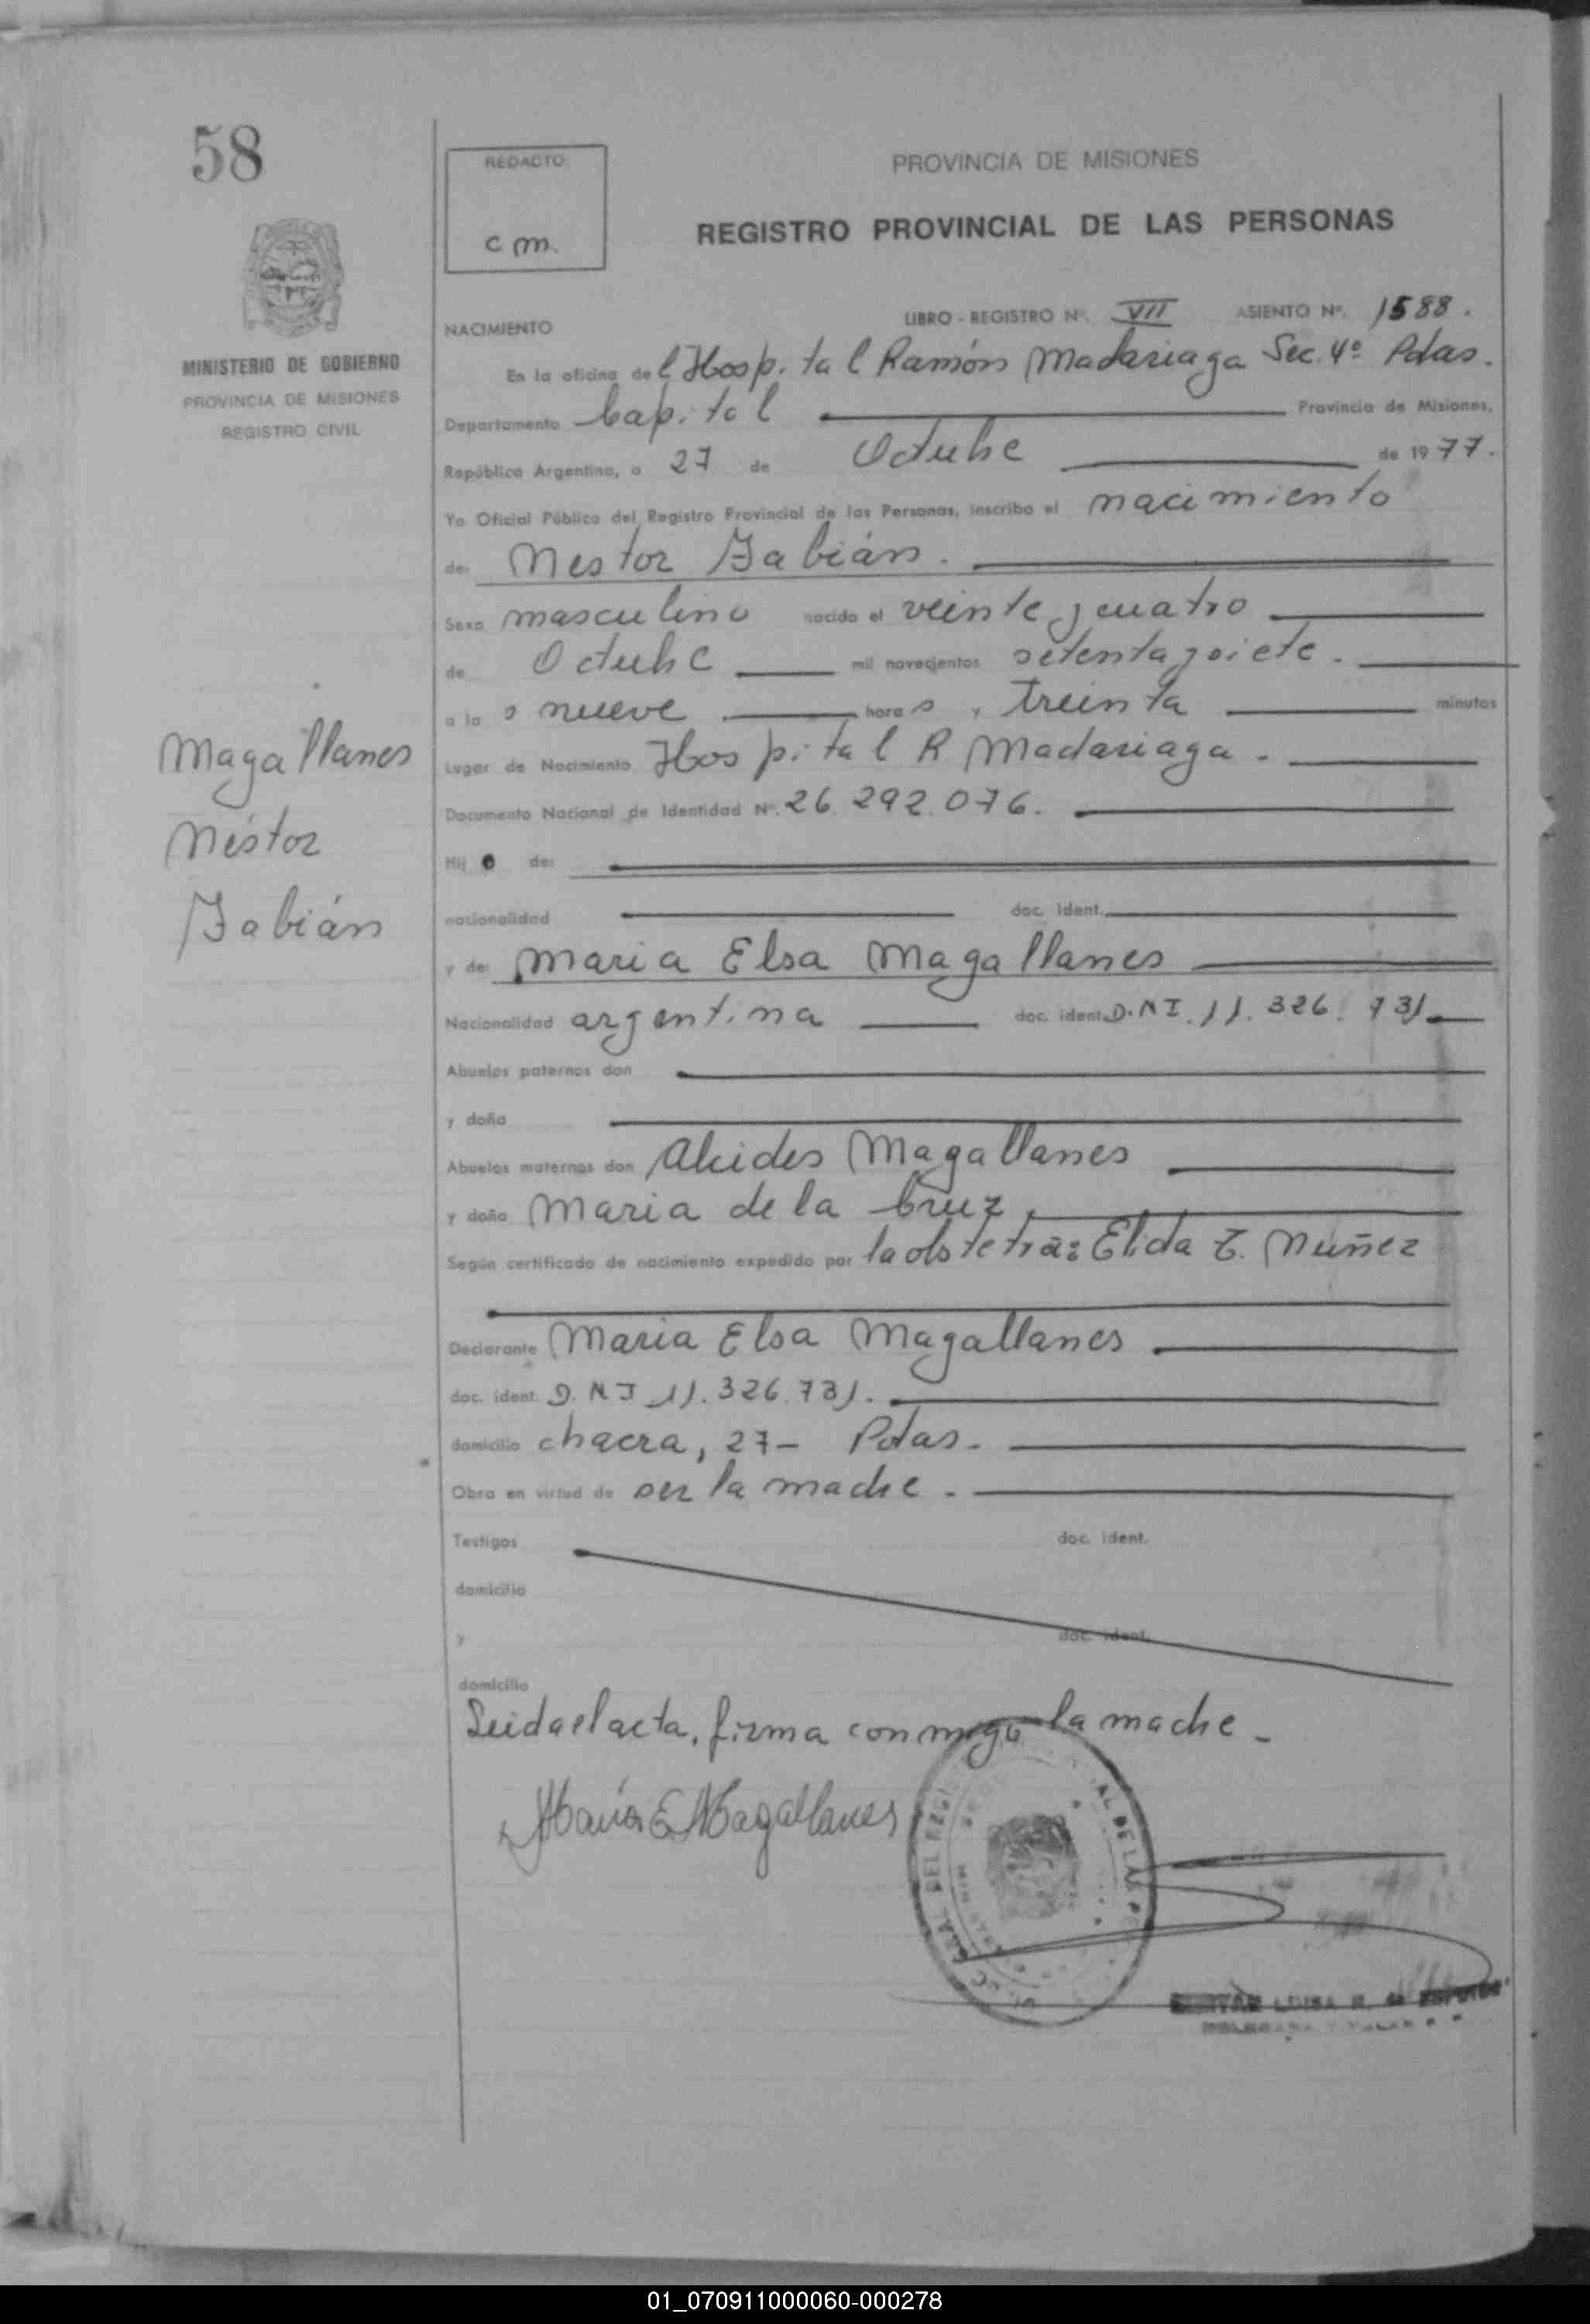 58
REDACTO
c m.
PROVINCIA DE MISIONES
REGISTRO PROVINCIAL DE LAS PERSONAS
MINISTERIO DE GOBIERNO
PROVINCIA DE MISIONES
REGISTRO CIVIL
NACIMIENTO
LIBRO - REGISTRO Nº. VII ASIENTO Nº. 1588.
En la oficina del Hospital Ramón Madariaga Sec. 4º Pdas.
Departamento Capital Provincia de Misiones,
República Argentina, a 27 de Octubre de 1977.
Yo Oficial Público del Registro Provincial de las Personas, inscribo el nacimiento
de: Nestor Fabián.
Sexo masculino nacido el veinte y cuatro
de Octubre mil novecientos setenta y siete.
a las nueve horas y treinta minutos
Lugar de Nacimiento Hospital R Madariaga.
Documento Nacional de Identidad Nº. 26.292.076.
Hijo de:
nacionalidad doc. ident.
y de: Maria Elsa Magallanes
Nacionalidad argentina doc. ident. D.N.I. 11.326.731
Abuelos paternos don
y doña
Abuelos maternos don Alcides Magallanes
y doña Maria de la Cruz
Según certificado de nacimiento expedido por la obstetra: Elida T. Nuñez
Declarante Maria Elsa Magallanes
doc. ident. D.N.I 11.326.731.
domicilio chacra, 27- Pdas.
Obra en virtud de ser la madre.
Testigos doc. ident.
domicilio
y doc. ident.
domicilio
Leida el acta, firma conmigo la madre.
Maria E Magallanes
Magallanes
Néstor
Fabián
01_070911000060-000278